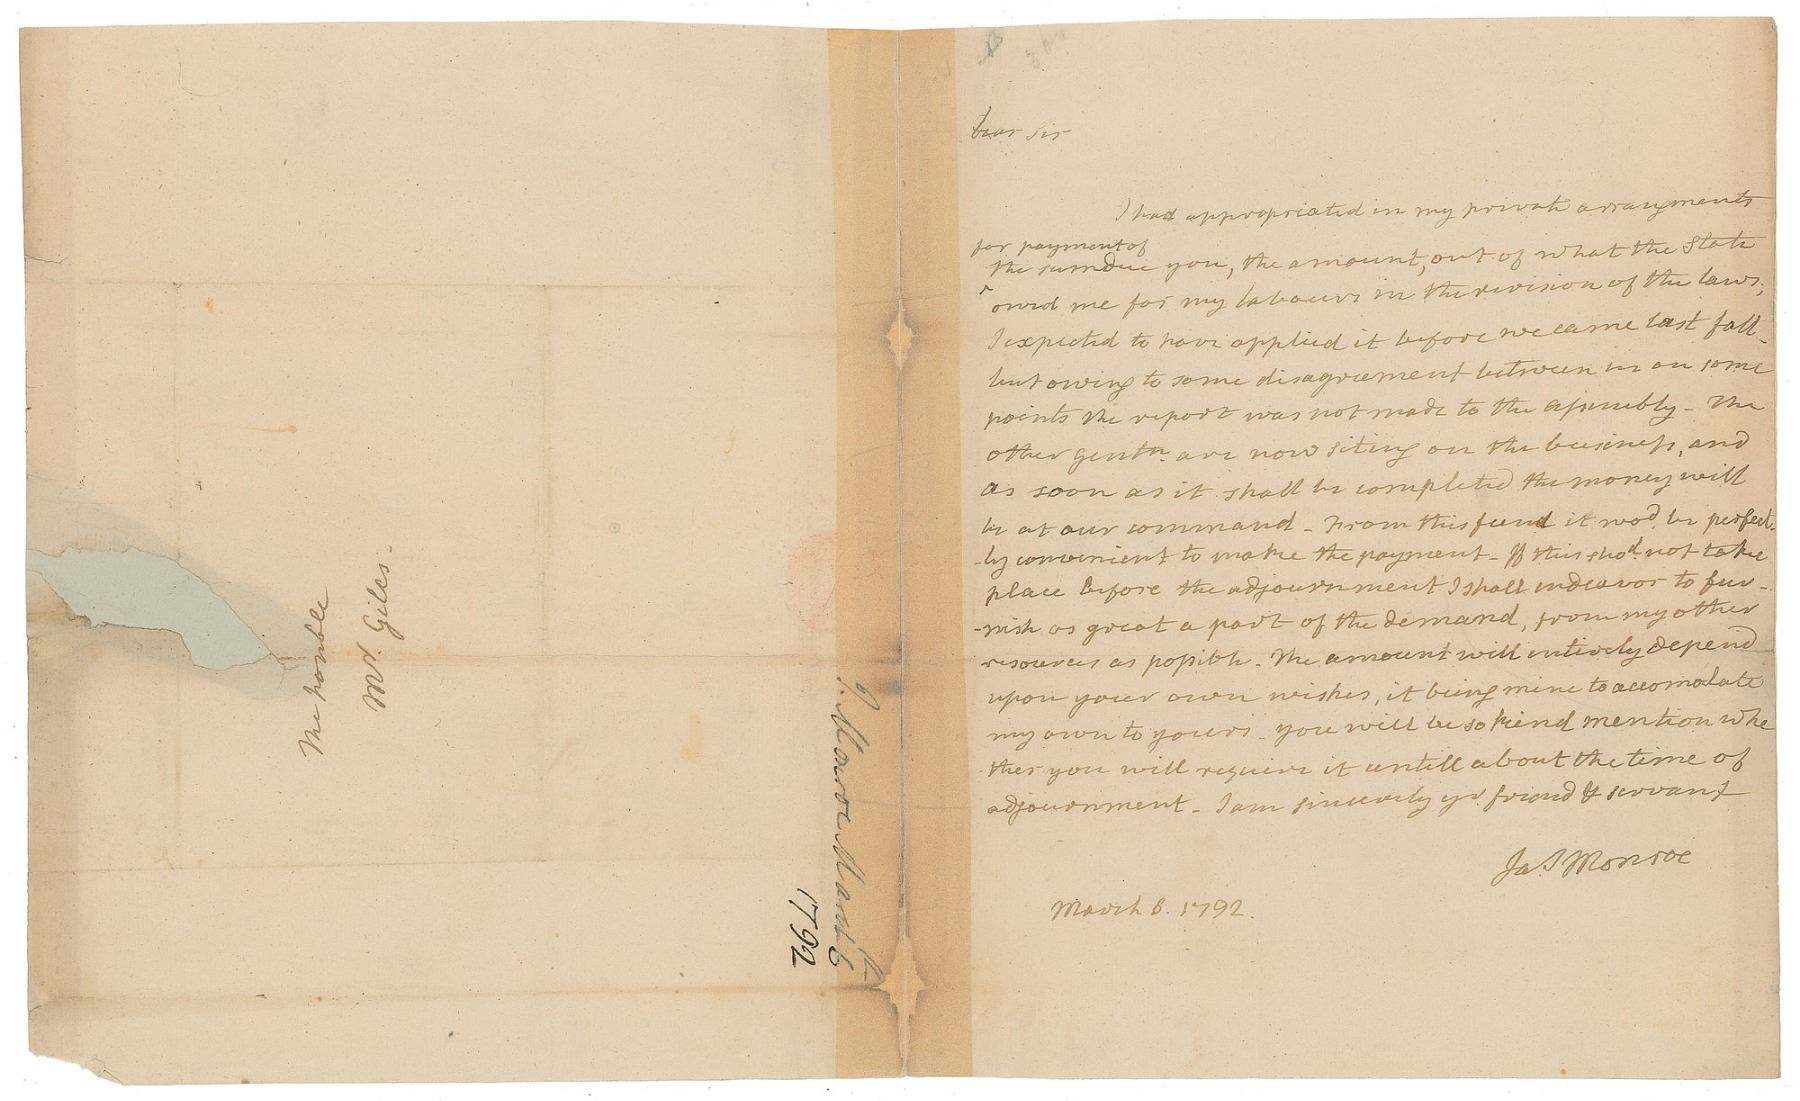 The honble
Mr. Giles.
J. Monroe March 6th
1792
Dear Sir
I had appropriated in my private arrangments
for payment of
the sum due you, the amount, out of what the State
^ owed me for my labours in the revision of the laws;
I expected to have applied it before we came last fall-
but owing to some disagreement between us on some
points the report was not made to the assembly - The
other gentn. are now siting on the business, and
as soon as it shall be completed the money will
be at our command - From this fund it wod. be perfect-
-ly convenient to make the payment - If this shod. not take
place before the adjournment I shall endeavor to fur-
-nish as great a part of the demand, from my other
resources as possible. The amount will entirely depend
upon your own wishes, it being mine to accomodate
my own to yours. you will be so kind mention whe
ther you will require it untill about the time of
adjournment - I am sincerely yr. friend & servant
Jas Monroe
March 6. 1792.